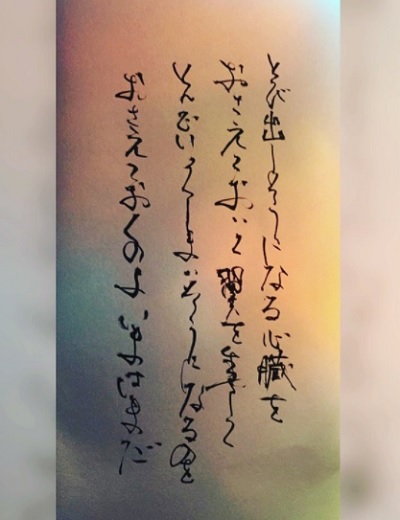 とび出しそうになる心臓を
おさえておいて翼を生やして
とんでいってしまいそうになるのを
おさえておくのよいまはまだ